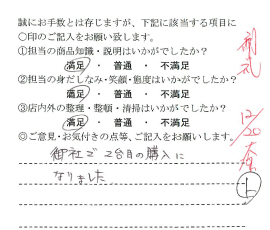 誠にお手数とは存じますが、下記に該当する項目に
〇印のご記入をお願い致します。
①担当の商品知識・説明はいかがでしたか？
満足 ・ 普通 ・ 不満足
②担当の身だしなみ・笑顔・態度はいかがでしたか？
満足 ・ 普通 ・ 不満足
③店内外の整理・整頓・清掃はいかがでしたか？
満足 ・ 普通 ・ 不満足
◎ご意見・お気付きの点等、ご記入をお願いします。
御社で2台目の購入に
なりました
12/20
上